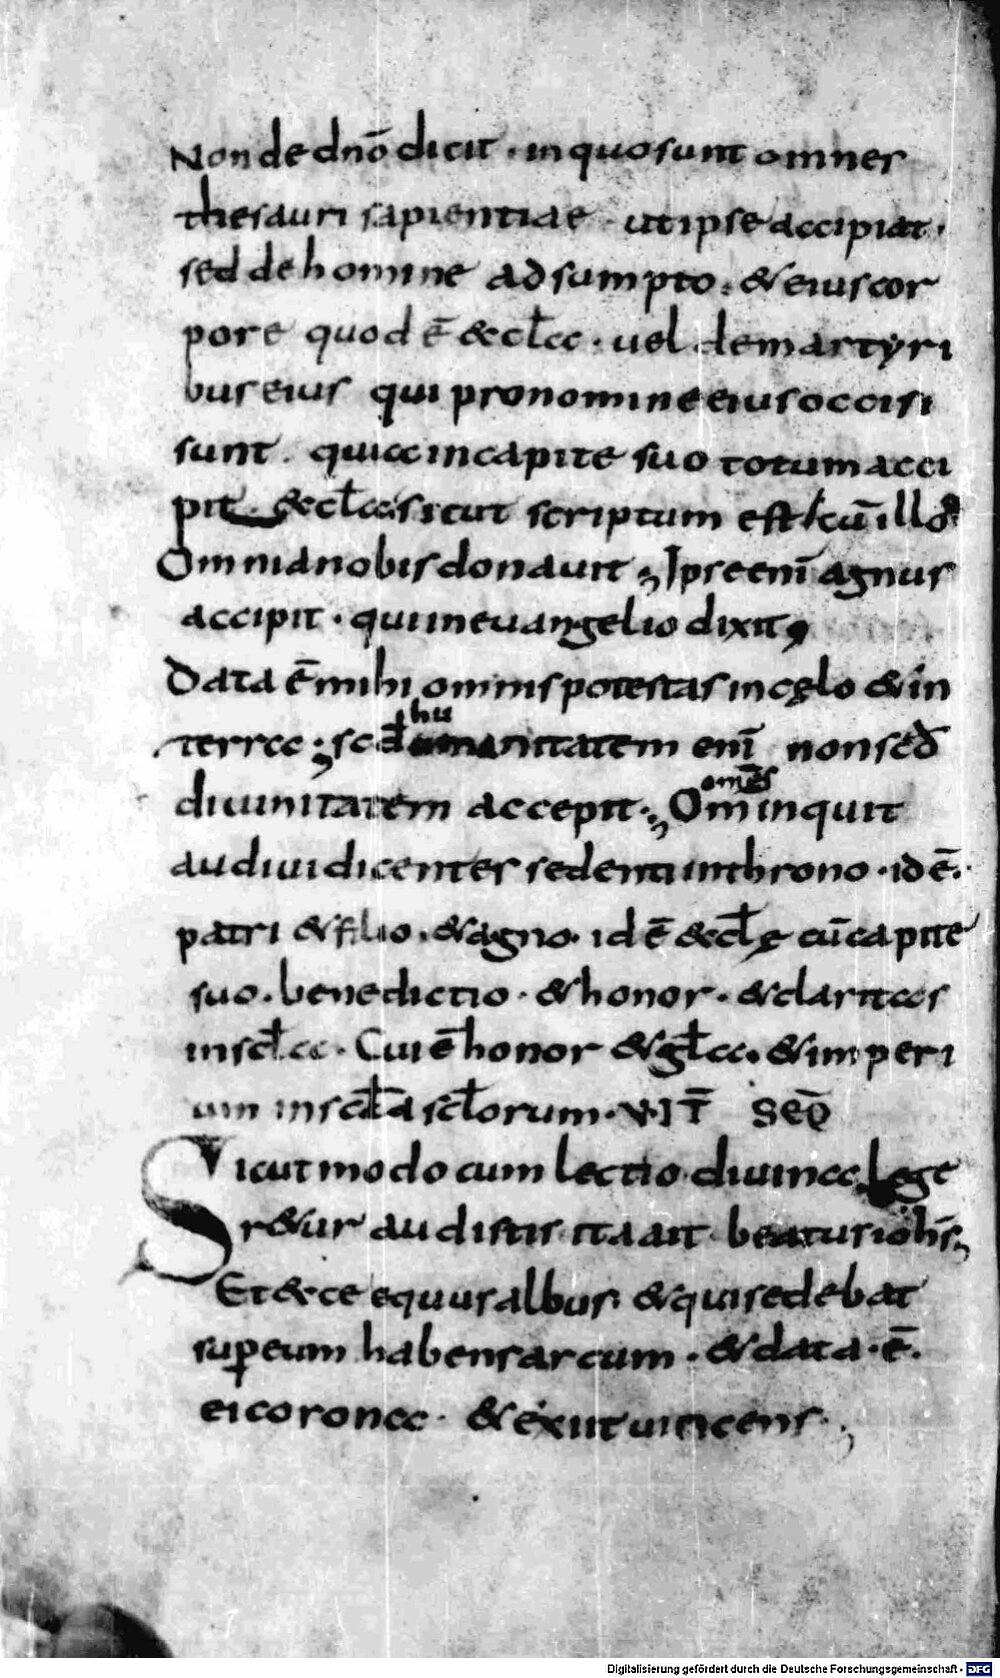 Non de dnō dicit · in quo sunt omnes
thesauri sapientiae · ut ipse accipiat ·
sed de homine adsumpto · & eius cor
pore quod ē & cl̄a · uel de martyri
bus eius qui pro nomine eius occisi
sunt · quia in capite suo totum acci
pit · & cl̄a sicut scriptum est cū illo
Omnia nobis donauit ; Ipse enī agnus
accipit · qui in euangelio dixit ;
Data ē mihi omnis potestas in cęlo & in
terra ; sed humanitatem enī non sed
diuinitatem accepit ; Om̄s inquit
audiui dicentes sedenti in throno · id ē ·
patri & filio · & agno · id ē & cl̄ę cū capite
suo · benedictio · & honor · & claritas
in scl̄a · Cui ē honor & gl̄a · & imperi
um in scl̄a scl̄orum · VII SEQ̄
Sicut modo cum lectio diuina lege
r&ur audistis ita ait beatus iohīs ;
Et & ce equus albus · & qui sedebat
super eum habens arcum · & data · ē ·
ei corona · & exiit uincens · ;
Digitalisierung gefördert durch die Deutsche Forschungsgemeinschaft - DFG